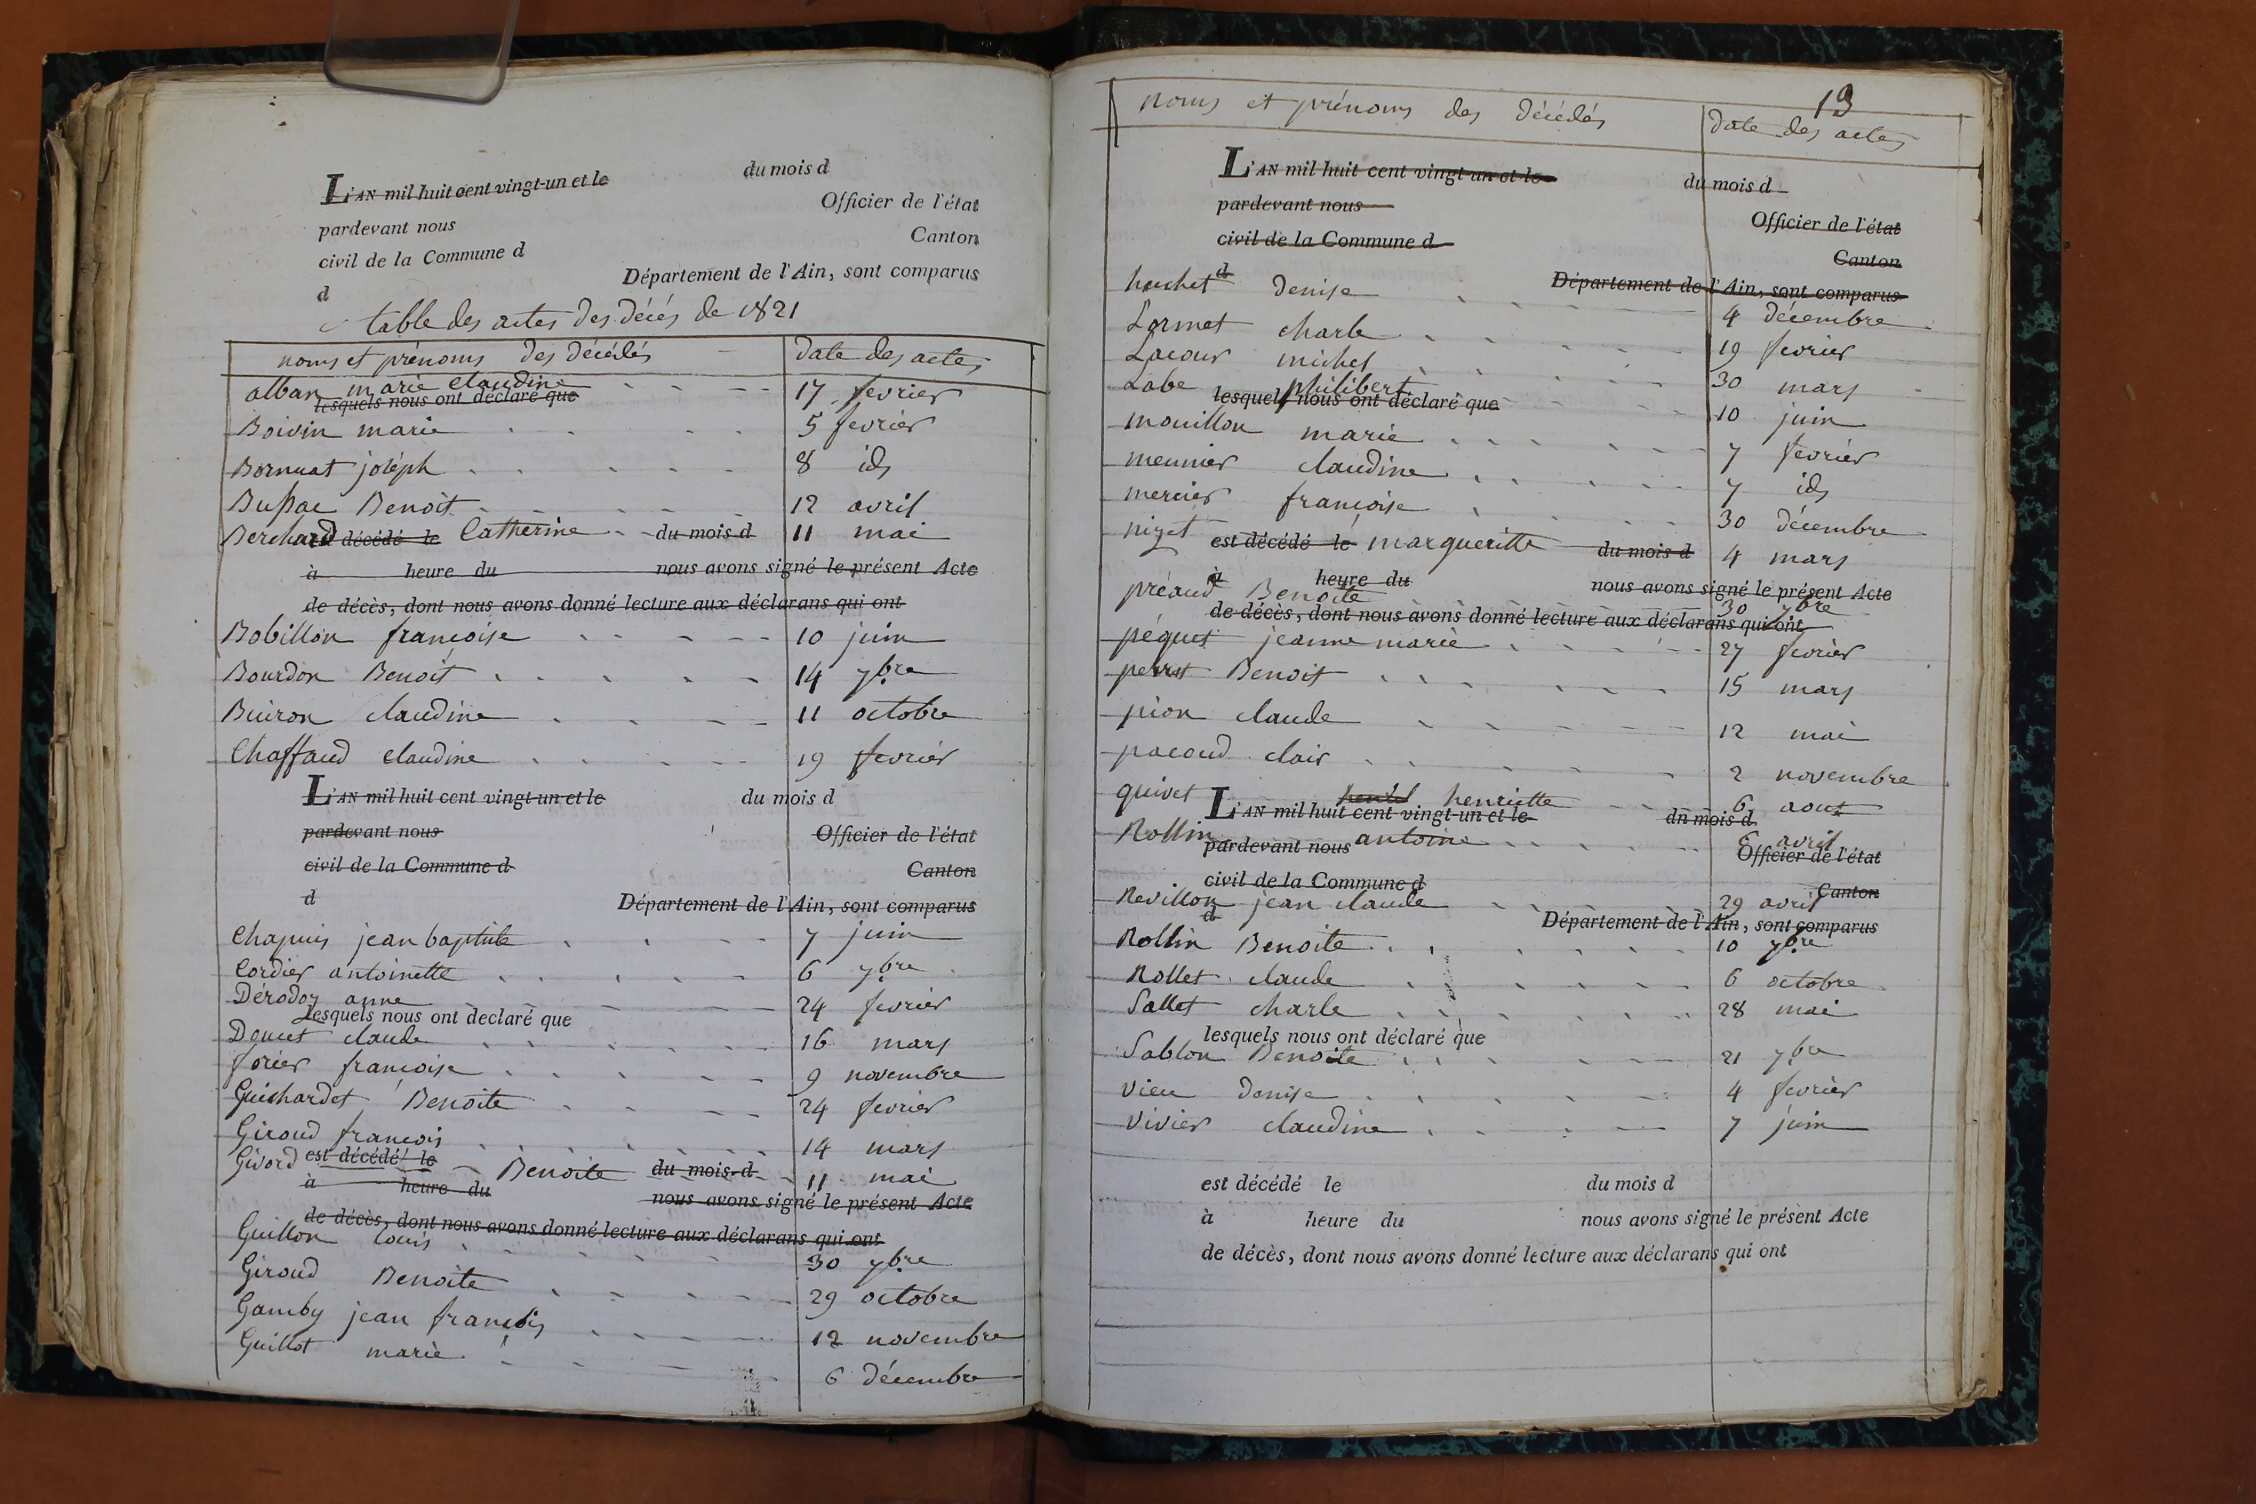 L'AN mil huit cent vingt-un et le du mois d
pardevant nous Officier de l'état
civil de la Commune d Canton
d Département de l'Ain, sont comparus
table des actes des décés de 1821
noms et prénoms des décédés date des actes
alban marie claudine 17 fevrier
lesquels nous ont déclaré que
Boivin marie 5 fevrier
Bornuat joséph 8 id
Benoit 12 avril
Berchard est décédé le Catherine du mois d 11 mai
à heure du nous avons signé le présent Acte
de décès, dont nous avons donné lecture aux déclarans qui ont
Bobillon françoise 10 juin
Bourdon Benoit 14 7bre
Buiron claudine 11 octobre
Chaffaud claudine 19 fevrier
L'AN mil huit cent vingt-un et le du mois d
pardevant nous Officier de l'état
civil de la Commune d Canton
d Département de l'Ain, sont comparus
Chapuis jean baptiste 7 juin
Cordier antoinette 6 7bre
Dérodoz anne 24 fevrier
lesquels nous ont déclaré que
Doucet claude 16 mars
forier françoise 9 novembre
Guichardet Benoite 24 fevrier
Giroud françois 14 mars
Givord est décédé le Benoite du mois d 11 mai
à heure du nous avons signé le présent Acte
de décès, dont nous avons donné lecture aux déclarans qui ont
Guillon louis 30 7bre
Giroud Benoite 29 octobre
Gamby jean françois 12 novembre
Guillot marie 6 décembre
13
noms et prénoms des décédés date des actes
L'AN mil huit cent vingt-un et le du mois d
pardevant nous Officier de l'état
civil de la Commune d Canton
d Département de l'Ain, sont comparus
huchet denise 4 décembre
Lormet charle 19 fevrier
Lacour michel 30 mars
Labe philibert 10 juin
lesquels nous ont déclaré que
mouillon marie 7 fevrier
meunier claudine 7 id
mercier françoise 30 décembre
nizet est décédé le margueritte du mois d 4 mars
à heure du nous avons signé le présent Acte
préaud Benoite 30 7bre
de décès, dont nous avons donné lecture aux déclarans qui ont
péquet jeanne marie 27 fevrier
perret Benoit 15 mars
pion claude 12 mai
pacoud clair 2 novembre
quivet henriette 6 aout
L'AN mil huit cent vingt-un et le du mois d
Rollin antoine 6 avril
pardevant nous Officier de l'état
civil de la Commune d Canton
Revillon jean claude 29 avril
d Département de l'Ain, sont comparus
Rollin Benoite 10 7bre
Rollet claude 6 octobre
Sallet charle 28 mai
lesquels nous ont déclaré que
Sablon Benoite 21 7bre
vieu denise 4 fevrier
vivier claudine 7 juin
est décédé le du mois d
à heure du nous avons signé le présent Acte
de décès, dont nous avons donné lecture aux déclarans qui ont